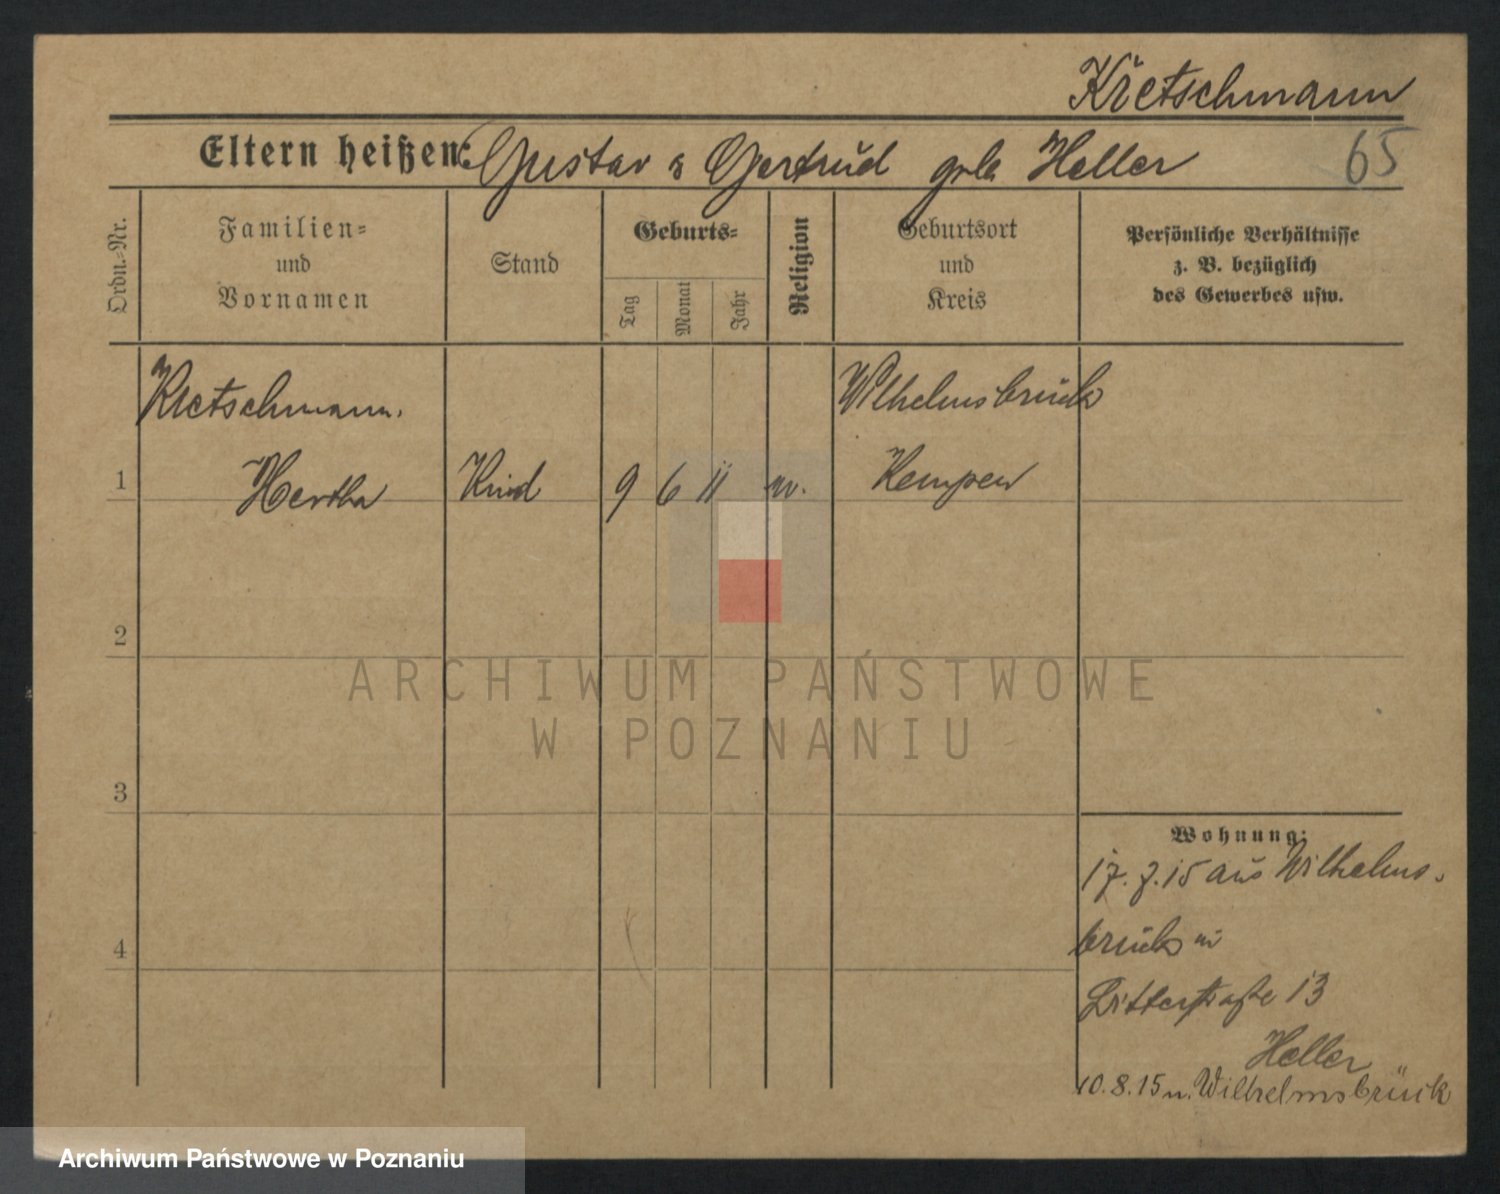 Kretschmann
Eltern heißen: Gustav & Gertrud geb. Heller
65
Ordn.-Nr.
Familien-
und
Vornamen
Stand
Geburts-
Tag
Monat
Jahr
Religion
Geburtsort
und
Kreis
Persönliche Verhältnisse
z. B. bezüglich
des Gewerbes usw.
Kretschmann.
Wilhelmsbrück
1
Hertha
Kind
9
6
11
Kempen
2
3
4
Wohnung:
17.7.15 aus Wilhelms-
brück in
Ritterstraße 13
Heller
10.8.15 n. Wilhelmsbrück
ARCHIWUM PAŃSTWOWE
W POZNANIU
Archiwum Państwowe w Poznaniu